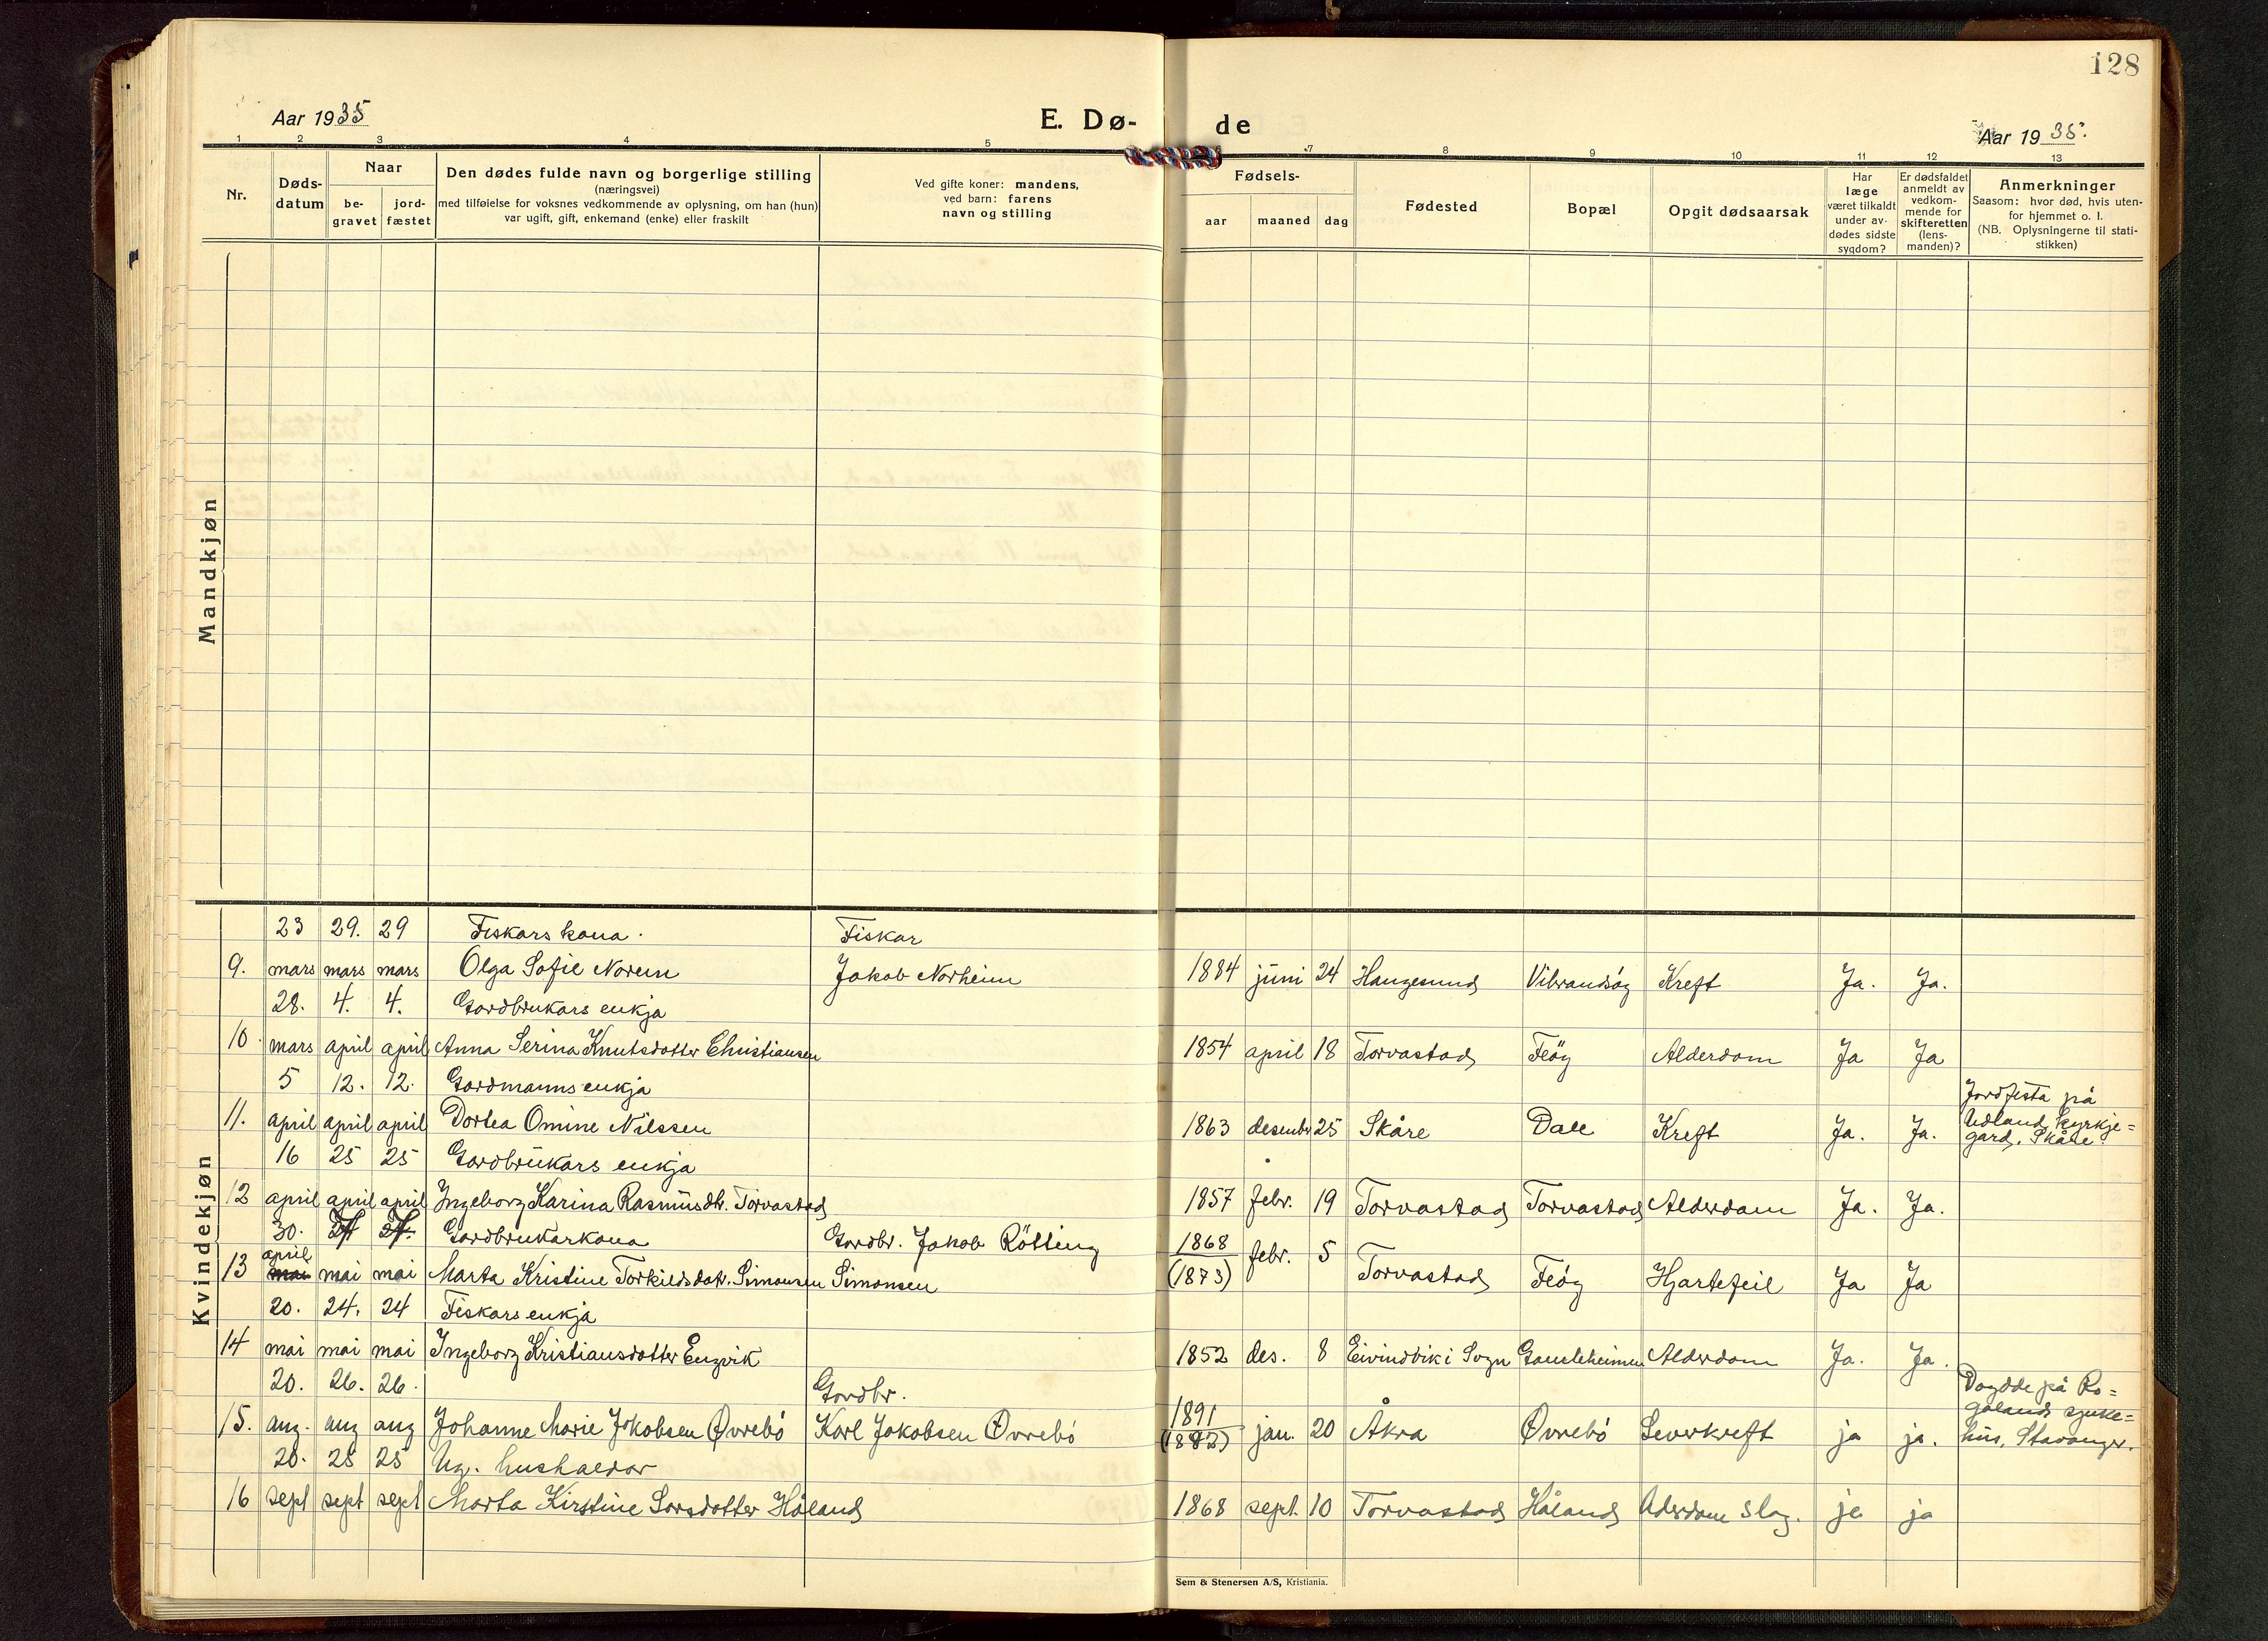 128
Aar 1935
E. Dø-
de
Aar 1935.
1 2 3 4 5 6 7 8 9 10 11 12 13
Nr.
Døds-
datum
Naar
be-
gravet
jord-
fæstet
Den dødes fulde navn og borgerlige stilling
(næringsvei)
med tilføielse for voksnes vedkommende av oplysning, om han (hun)
var ugift, gift, enkemand (enke) eller fraskilt
Ved gifte koner: mandens,
ved barn: farens
navn og stilling
Fødsels-
aar
maaned
dag
Fødested
Bopæl
Opgit dødsaarsak
Har
læge
været tilkaldt
under av-
dødes sidste
sygdom?
Er dødsfaldet
anmeldt av
vedkom-
mende for
skifteretten
(lens-
manden)?
Anmerkninger
Saasom: hvor død, hvis uten-
for hjemmet o. l.
(NB. Oplysningerne til stati-
stikken)
Mandkjøn
Kvindekjøn
23 29. 29 Fiskars kona. Fiskar
9. mars mars mars Olga Sofie Norem Jakob Norheim 1884 juni 24 Haugesund Vibrandsøy Kreft Ja. Ja.
28. 4. 4. Gardbrukars enkja
10. mars april april Anna Serina Knutsdotter Christiansen 1854 april 18 Torvastad Feøy Alderdom Ja Ja
5 12. 12. Gardmanns enkja
11. april april april Dortea Omine Nilssen 1863 desembr 25 Skåre Dale Kreft Ja. Ja.
Jordfesta på
Udland kyrkje=
gard, Skåre
16 25 25 Gardbrukars enkja
12 april april april Ingeborg Karina Rasmusdtr. Torvastad 1857 febr. 19 Torvastad Torvastad Alderdom Ja. Ja.
30. Gardbrukarkona Gardbr. Jakob Rötting
13 april mai mai mai Marta Kristine Torkielsdotr. Simonsen Simonsen 1868 (1873) febr. 5 Torvastad Feøy Hjartefeil Ja Ja
20. 24. 24 Fiskars enkja
14 mai mai mai Ingeborg Kristiansdotter Engvik 1852 des. 8 Eivindvik i Sogn Gamleheimen Alderdom Ja. Ja.
20. 26. 26. Gardbr.
15. aug. aug aug Johanne Marie Jakobsen Øvrebö Karl Jakobsen Øvrebö 1891 (1882) jan. 20 Åkra Øvrebö Leverkreft ja ja.
Døydde på Ro=
galands sjuke=
hus, Stavanger.
20. 25 25 Ug. hushaldar
16 sept sept sept Marta Kirstine Larsdotter Håland 1868 sept. 10 Torvastad Håland Alderdom slag. ja ja
Sem & Stenersen A/S, Kristiania.